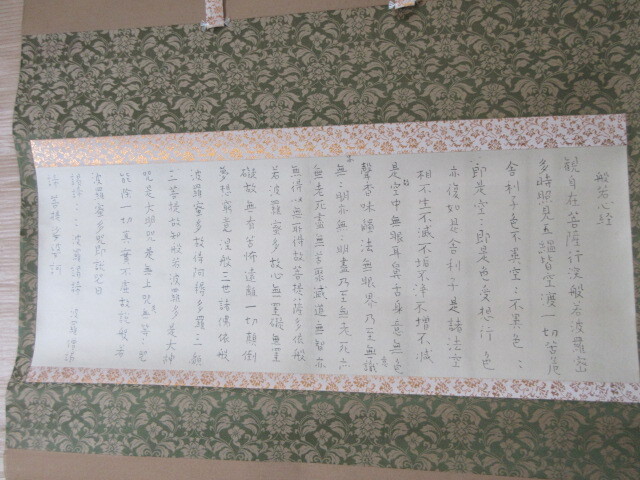 般若心経
観自在菩薩行深般若波羅密
多時照見五蘊皆空度一切苦厄
舎利子色不異空：不異色：
即是空：即是色受想行色
亦復如是舎利子是諸法空
相不生不滅不垢不浄不増不減
是空中無眼耳鼻舌身意無色
聲香味觸法無眼界乃至無識
無：明亦無：明盡乃至無老死亦
無老死盡無苦集滅道無智亦
無得以無所得故菩提薩多依般
若波羅蜜多故心無罣礙無罣
礙故無有苦怖遠離一切顛倒
夢想究竟涅般三世諸佛依般
波羅蜜多故得阿得多羅三藐
三菩提故制般若波羅多是大神
咒是大明咒是無上咒無等：咒
能除一切真実不虚故説般若
波羅蜜多咒即説咒曰
羯諦：：波羅羯諦 波羅僧羯
諦 菩提 娑婆 訶